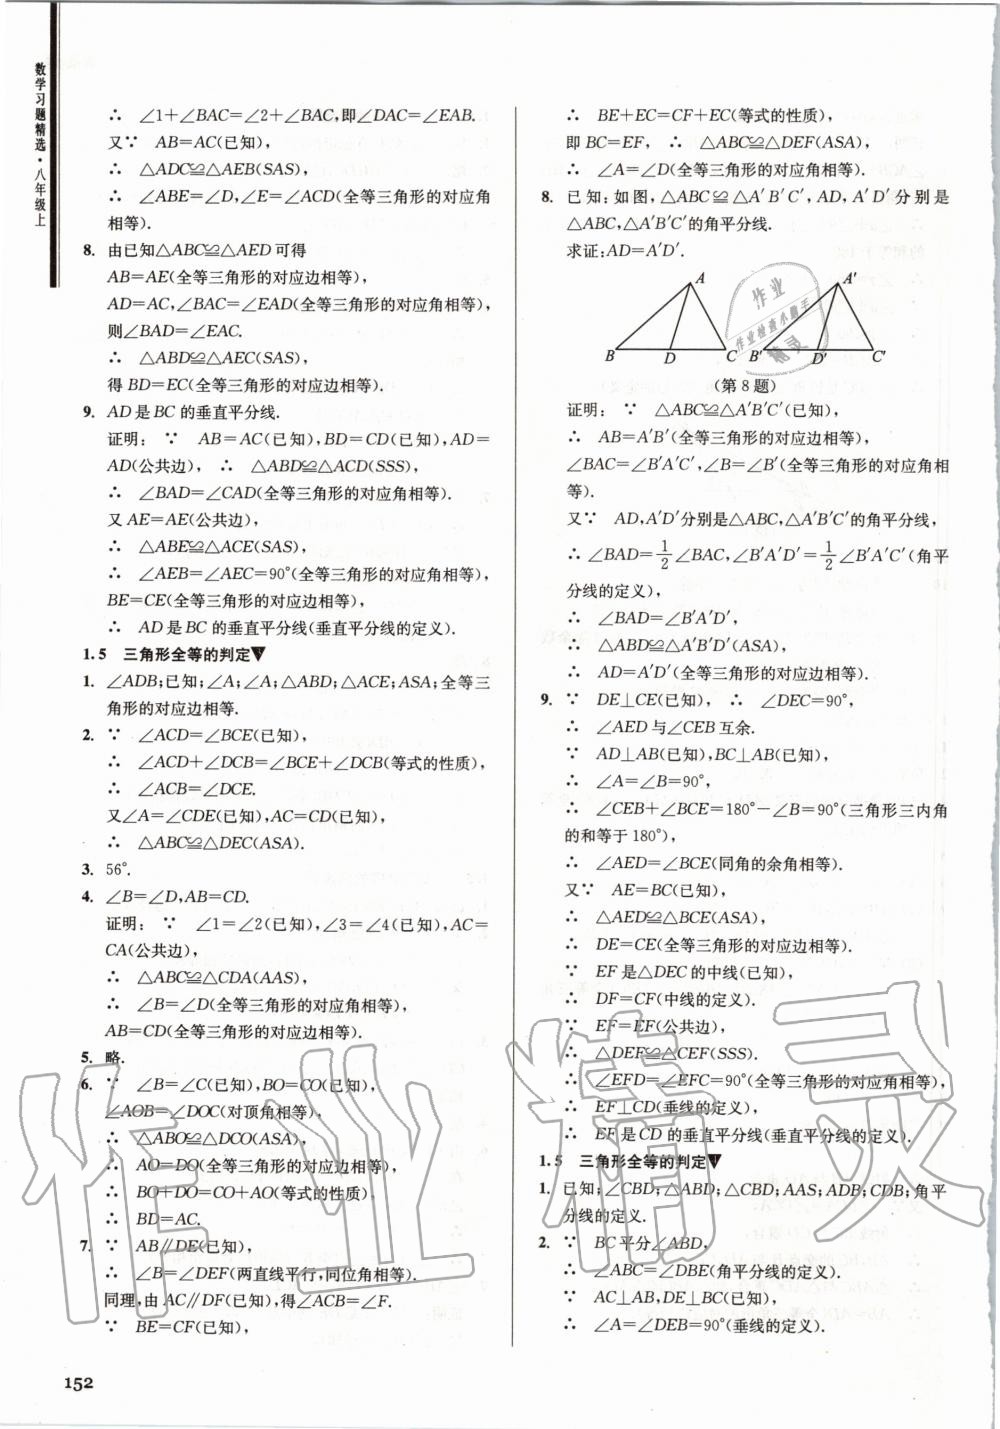 数学习题精选·八年级上
∴ ∠1+∠BAC=∠2+∠BAC,即∠DAC=∠EAB.
又∵ AB=AC(已知),
∴ △ADC≌△AEB(SAS),
∴ ∠ABE=∠D,∠E=∠ACD(全等三角形的对应角
相等).
8. 由已知△ABC≌△AED可得
AB=AE(全等三角形的对应边相等),
AD=AC,∠BAC=∠EAD(全等三角形的对应角相等),
则∠BAD=∠EAC.
∴ △ABD≌△AEC(SAS),
得 BD=EC(全等三角形的对应边相等).
9. AD是BC的垂直平分线.
证明: ∵ AB=AC(已知),BD=CD(已知),AD=
AD(公共边), ∴ △ABD≌△ACD(SSS),
∴ ∠BAD=∠CAD(全等三角形的对应角相等).
又 AE=AE(公共边),
∴ △ABE≌△ACE(SAS),
∴ ∠AEB=∠AEC=90°(全等三角形的对应角相等),
BE=CE(全等三角形的对应边相等),
∴ AD是BC的垂直平分线(垂直平分线的定义).
1.5 三角形全等的判定
1. ∠ADB;已知;∠A;∠A;△ABD;△ACE;ASA;全等三
角形的对应边相等.
2. ∵ ∠ACD=∠BCE(已知),
∴ ∠ACD+∠DCB=∠BCE+∠DCB(等式的性质),
∴ ∠ACB=∠DCE.
又∠A=∠CDE(已知),AC=CD(已知),
∴ △ABC≌△DEC(ASA).
3. 56°.
4. ∠B=∠D,AB=CD.
证明: ∵ ∠1=∠2(已知),∠3=∠4(已知),AC=
CA(公共边),
∴ △ABC≌△CDA(AAS),
∴ ∠B=∠D(全等三角形的对应角相等),
AB=CD(全等三角形的对应边相等).
5. 略.
6. ∵ ∠B=∠C(已知),BO=CO(已知),
∠AOB=∠DOC(对顶角相等),
∴ △ABO≌△DCO(ASA),
∴ AO=DO(全等三角形的对应边相等),
∴ BO+DO=CO+AO(等式的性质),
∴ BD=AC.
7. ∵ AB∥DE(已知),
∴ ∠B=∠DEF(两直线平行,同位角相等).
同理,由AC∥DF(已知),得∠ACB=∠F.
∵ BE=CF(已知),
152
∴ BE+EC=CF+EC(等式的性质),
即BC=EF, ∴ △ABC≌△DEF(ASA),
∴ ∠A=∠D(全等三角形的对应角相等).
8. 已知:如图,△ABC≌△A′B′C′,AD,A′D′分别是
△ABC,△A′B′C′的角平分线.
求证:AD=A′D′.
A A′
B D C B′ D′ C′
(第8题)
证明: ∵ △ABC≌△A′B′C′(已知),
∴ AB=A′B′(全等三角形的对应边相等),
∠BAC=∠B′A′C′,∠B=∠B′(全等三角形的对应角相
等).
又∵ AD,A′D′分别是△ABC,△A′B′C′的角平分线,
∴ ∠BAD=1/2∠BAC,∠B′A′D′=1/2∠B′A′C′(角平
分线的定义),
∴ ∠BAD=∠B′A′D′,
∴ △ABD≌△A′B′D′(ASA),
∴ AD=A′D′(全等三角形的对应边相等).
9. ∵ DE⊥CE(已知), ∴ ∠DEC=90°,
∴ ∠AED与∠CEB互余.
∵ AD⊥AB(已知),BC⊥AB(已知),
∴ ∠A=∠B=90°,
∴ ∠CEB+∠BCE=180°-∠B=90°(三角形三内角
的和等于180°),
∴ ∠AED=∠BCE(同角的余角相等).
又∵ AE=BC(已知),
∴ △AED≌△BCE(ASA),
∴ DE=CE(全等三角形的对应边相等).
∵ EF是△DEC的中线(已知),
∴ DF=CF(中线的定义).
∵ EF=EF(公共边),
∴ △DEF≌△CEF(SSS).
∴ ∠EFD=∠EFC=90°(全等三角形的对应角相等),
∴ EF⊥CD(垂线的定义).
∴ EF是CD的垂直平分线(垂直平分线的定义).
1.5 三角形全等的判定
1. 已知;∠CBD;△ABD;△CBD;AAS;ADB;CDB;角平
分线的定义.
2. ∵ BC平分∠ABD,
∴ ∠ABC=∠DBE(角平分线的定义).
∵ AC⊥AB,DE⊥BC(已知),
∴ ∠A=∠DEB=90°(垂线的定义).
作业
作业检查小助手
精灵
作业精灵